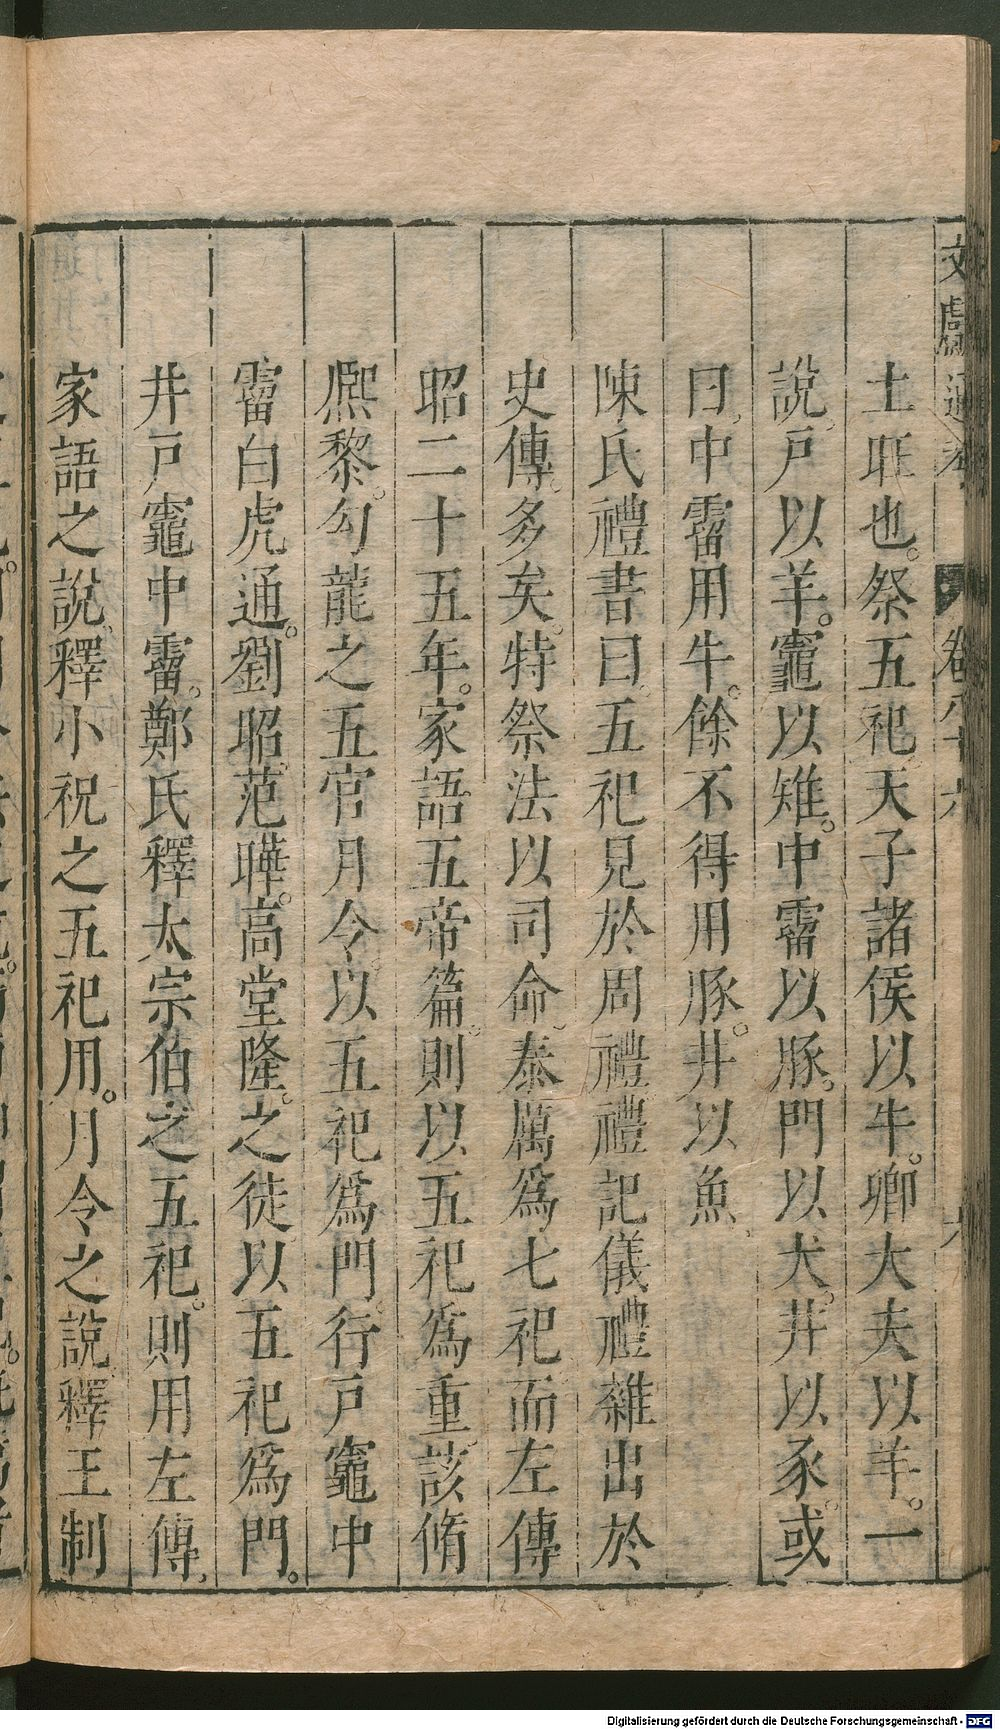 文獻通考 卷八十六 六
土旺也。祭五祀天子諸侯以牛。卿大夫以羊。一
說。戶以羊。竈以雉。中霤以豚。門以犬。井以豕。或
曰。中霤用牛。餘不得用豚。井以魚。
陳氏禮書曰。五祀見於周禮禮記儀禮雜出於
史傳。多矣。特祭法以司命泰厲爲七祀而左傳
昭二十五年。家語五帝篇。則以五祀爲重該脩
熈黎。勾龍之五官月令以五祀爲門。行戶竈中
霤白虎通。劉昭范曄。高堂隆。之徒以五祀爲門。
井戶竈中霤。鄭氏釋太宗伯之五祀。則用左傳。
家語之說。釋小祝之五祀用。月令之說釋王制
Digitalisierung gefördert durch die Deutsche Forschungsgemeinschaft - DFG